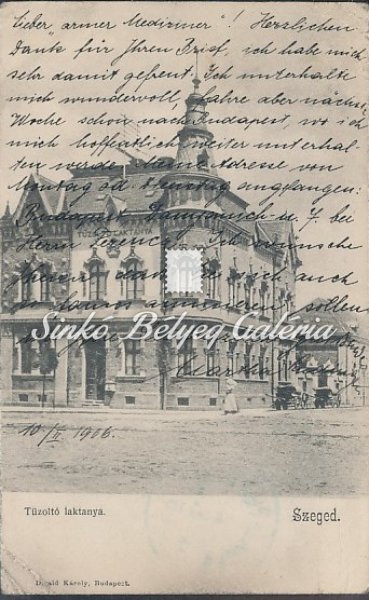 Lieber "armer Mediziner"! Herzlichen
Dank für Ihren Brief, ich habe mich
sehr damit gefreut. Ich unterhalte
mich wundervoll, fahre aber nächste
Woche schon nach Budapest, wo ich
mich hoffentlich weiter unterhal-
ten werde. Meine Adresse von
Montag od. Dienstag angefangen:
Budapest Damjanich-u. 7. bei
Herrn Ferenczy. Ich wünsche
Ihnen, dass Sie sich auch
so famos amüsieren sollen
TŰZOLTÓ LAKTANYA
Sinkó Bélyeg Galéria
10/II 1906.
Tüzoltó laktanya.
Szeged.
Divald Károly, Budapest.